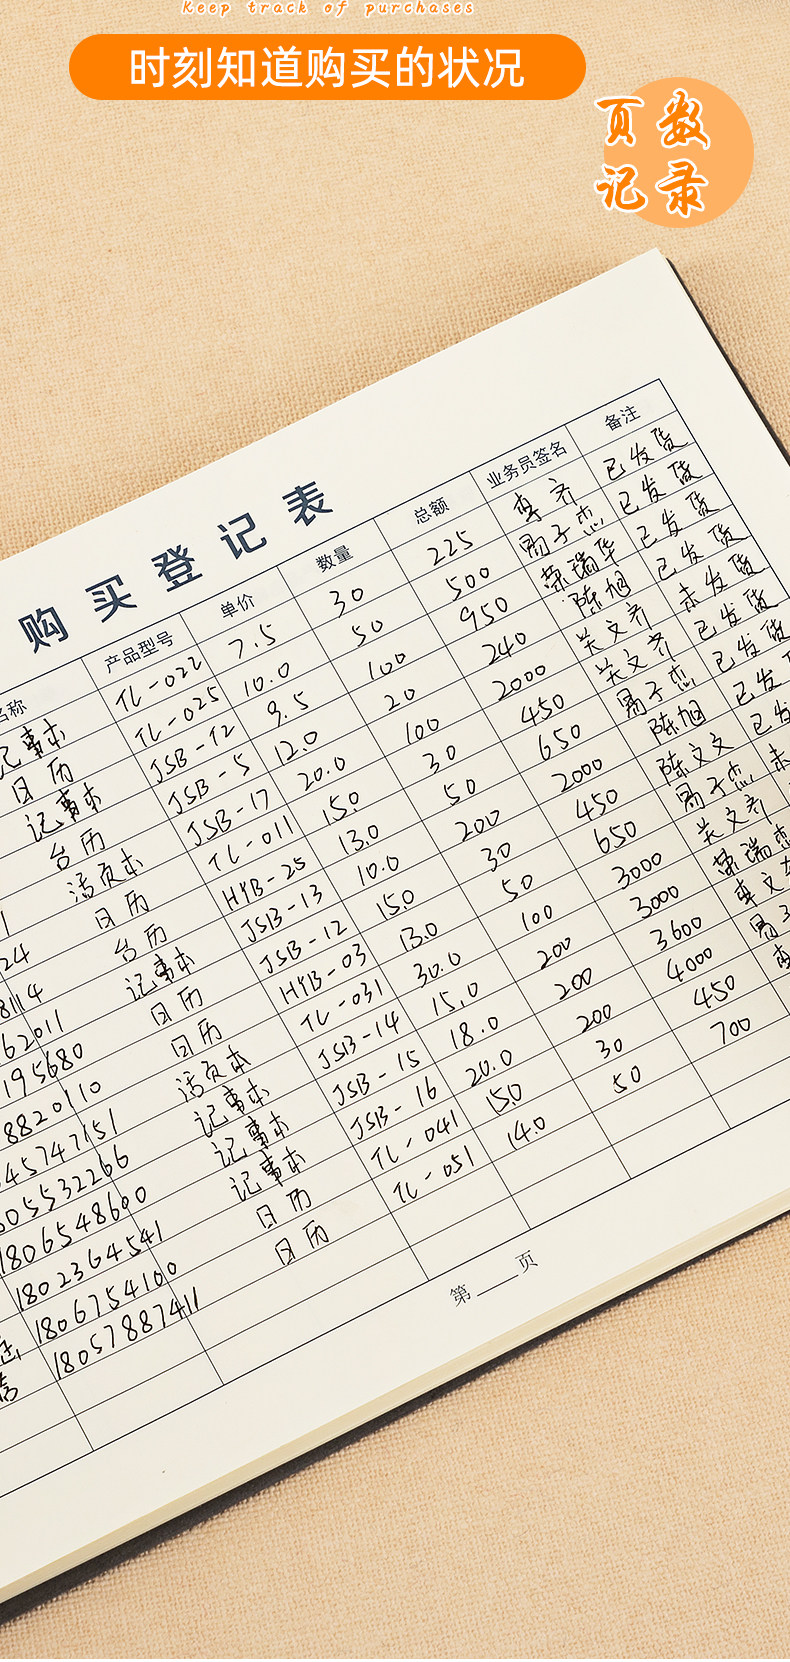 Keep track of purchases
时刻知道购买的状况
页数
记录
购买登记表
名称 产品型号 单价 数量 总额 业务员签名 备注
记事本 TL-022 7.5 30 225 李齐 已发货
日历 TL-025 10.0 50 500 易子杰 已发货
记事本 JSB-12 9.5 100 950 荣瑞华 已发货
台历 JSB-5 12.0 20 240 陈旭 已发货
1 活页本 JSB-17 20.0 100 2000 关文齐 未发货
24 日历 TL-011 15.0 30 450 关文齐 已发货
8114 台历 HYB-25 13.0 50 650 易子杰 已发货
62011 记事本 JSB-13 10.0 200 2000 陈旭 已发
195680 日历 JSB-12 15.0 30 450 陈文文 已发
8820110 日历 HYB-03 13.0 50 650 易子杰 未
45747151 活页本 TL-031 30.0 100 3000 关文齐
05532266 记事本 JSB-14 15.0 200 3000 荣瑞
1806548600 记事本 JSB-15 18.0 200 3600 李文
1802364541 记事本 JSB-16 20.0 200 4000 易子
1806754100 日历 TL-041 15.0 30 450 李
18057887411 日历 TL-051 14.0 50 700
第 页